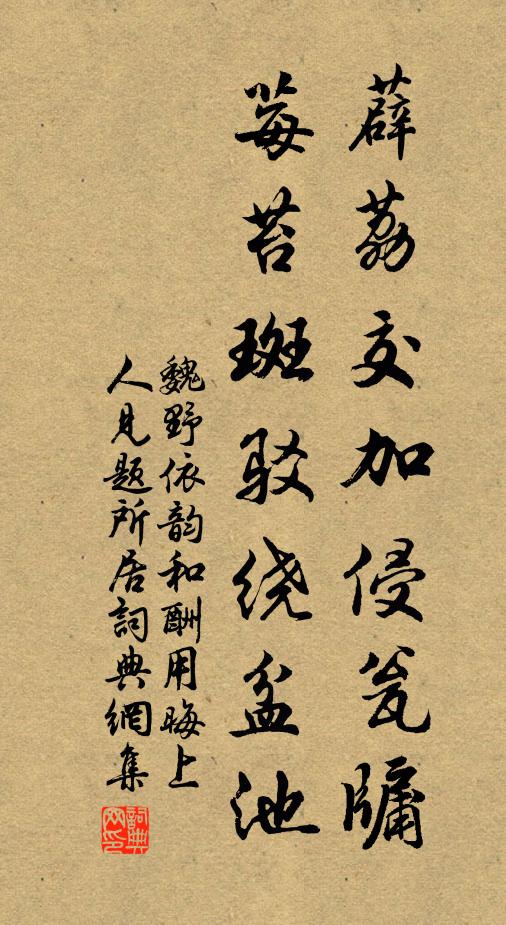 薜荔交加侵瓮牖
莓苔斑驳绕盆池
魏野依韵和酬用晦上
人见题所居詞典網集
詞典网印